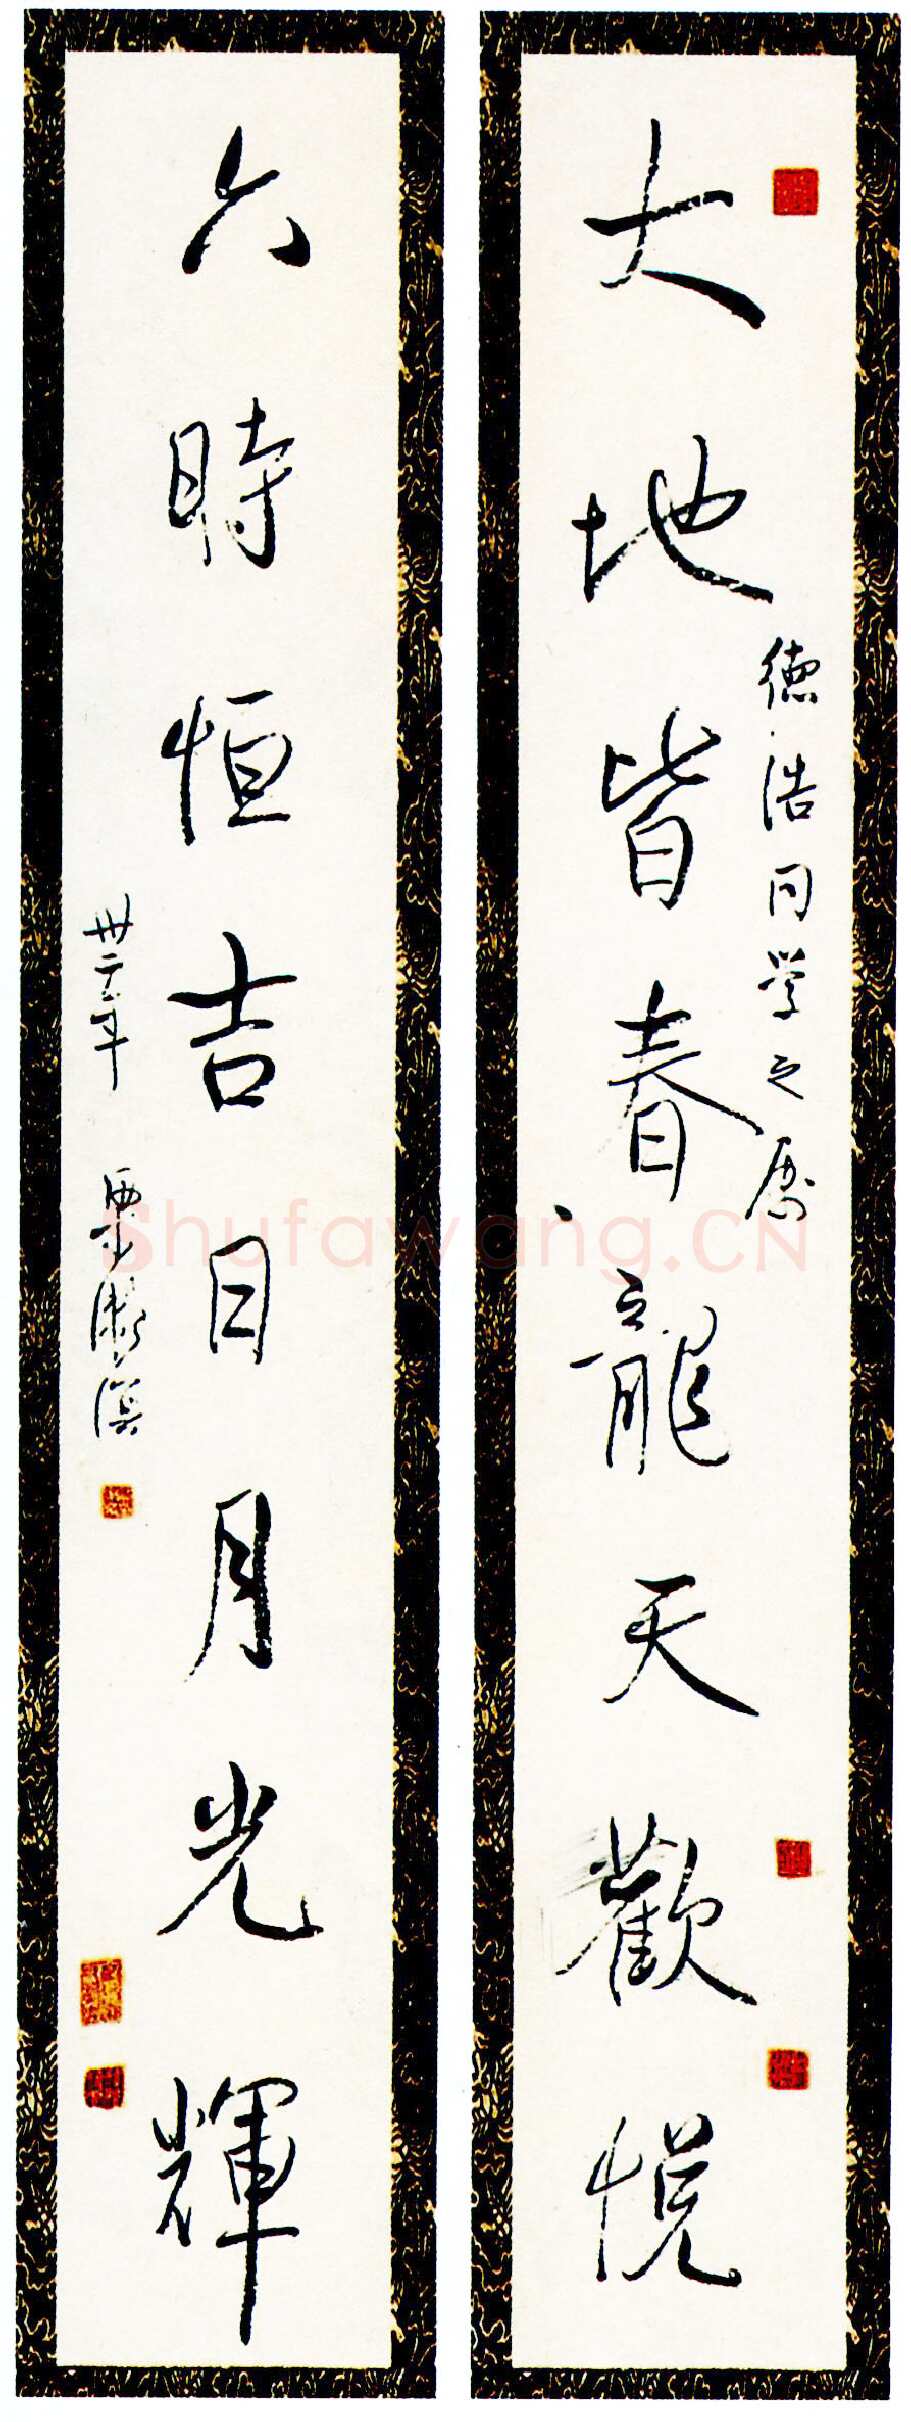 大地皆春龍天歡悅
德浩同学之属
六時恒吉日月光輝
卅二年 粟漱溟
Shufawang.CN